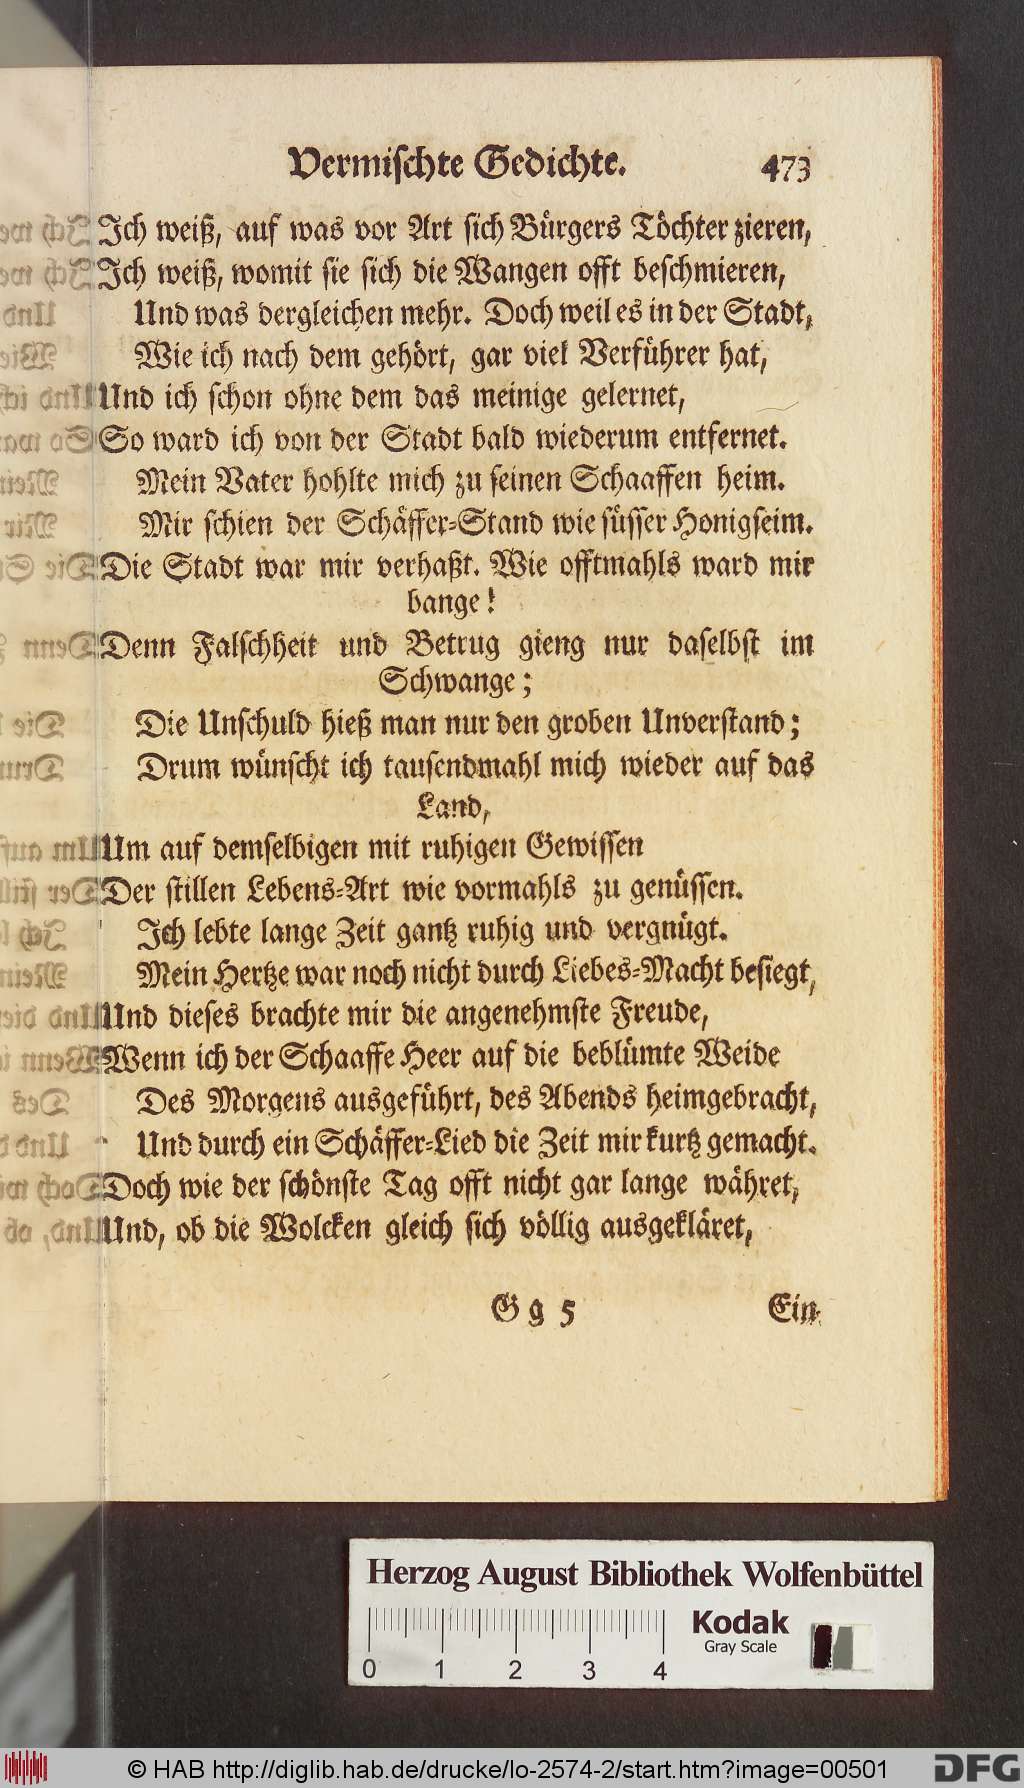 Vermischte Gedichte. 473
Ich weiß, auf was vor Art sich Bürgers Töchter zieren,
Ich weiß, womit sie sich die Wangen offt beschmieren,
Und was dergleichen mehr. Doch weil es in der Stadt,
Wie ich nach dem gehört, gar viel Verführer hat,
Und ich schon ohne dem das meinige gelernet,
So ward ich von der Stadt bald wiederum entfernet.
Mein Vater hohlte mich zu seinen Schaaffen heim.
Mir schien der Schäffer-Stand wie süsser Honigseim.
Die Stadt war mir verhaßt. Wie offtmahls ward mir
bange!
Denn Falschheit und Betrug gieng nur daselbst im
Schwange;
Die Unschuld hieß man nur den groben Unverstand;
Drum wünscht ich tausendmahl mich wieder auf das
Land,
Um auf demselbigen mit ruhigen Gewissen
Der stillen Lebens-Art wie vormahls zu genüssen.
Ich lebte lange Zeit gantz ruhig und vergnügt.
Mein Hertze war noch nicht durch Liebes-Macht besiegt,
Und dieses brachte mir die angenehmste Freude,
Wenn ich der Schaaffe Heer auf die beblümte Weide
Des Morgens ausgeführt, des Abends heimgebracht,
Und durch ein Schäffer-Lied die Zeit mir kurtz gemacht.
Doch wie der schönste Tag offt nicht gar lange währet,
Und, ob die Wolcken gleich sich völlig ausgekläret,
G g 5 Ein-
Herzog August Bibliothek Wolfenbüttel
Kodak
Gray Scale
0 1 2 3 4
© HAB http://diglib.hab.de/drucke/lo-2574-2/start.htm?image=00501
DFG